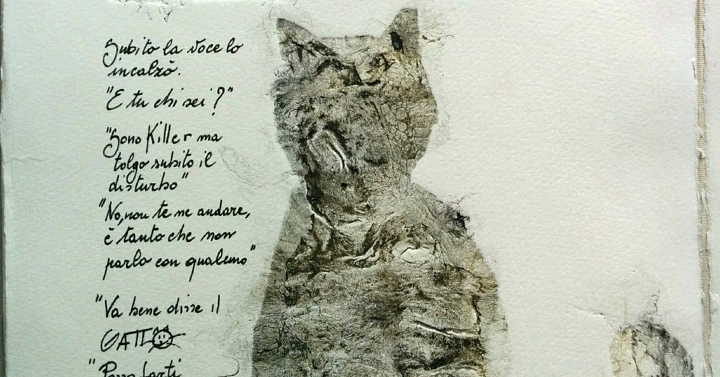 Subito la voce lo
incalzò.
"E tu chi sei?"
"Sono Killer ma
tolgo subito il
disturbo"
"No, non te ne andare,
è tanto che non
parlo con qualcuno"
"Va bene disse il
GATTO
"Poss farti